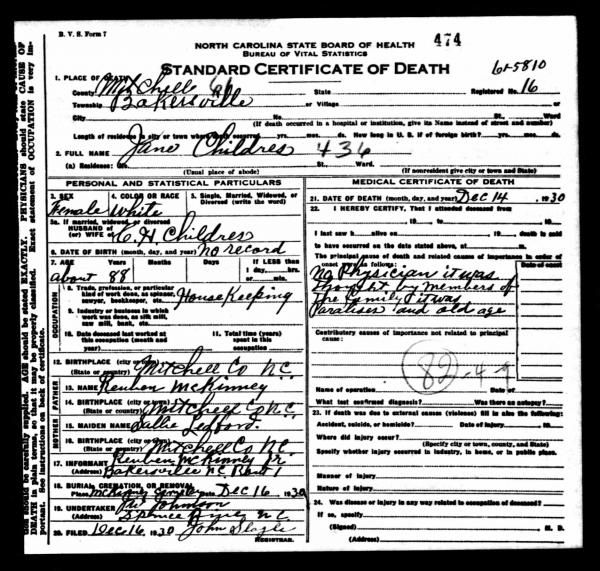 B. V. S. Form 7
474
NORTH CAROLINA STATE BOARD OF HEALTH
BUREAU OF VITAL STATISTICS
STANDARD CERTIFICATE OF DEATH
61-5810
1. PLACE OF DEATH
County Mitchell Co State Registered No. 16
Township Bakersville or Village or
City No. St., Ward
(If death occurred in a hospital or institution, give its NAME instead of street and number)
Length of residence in city or town where death occurred yrs. mos. ds. How long in U. S. if of foreign birth? yrs. mos. ds.
2. FULL NAME Jane Childres 436
(a) Residence: No. St., Ward.
(Usual place of abode) (If nonresident give city or town and State)
PERSONAL AND STATISTICAL PARTICULARS
3. SEX 4. COLOR OR RACE 5. Single, Married, Widowed, or Divorced (write the word)
Female White
5a. If married, widowed, or divorced
HUSBAND of
(or) WIFE of C. H. Childres
6. DATE OF BIRTH (month, day, and year) No record
7. AGE Years Months Days If LESS than
1 day, hrs.
or min.
about 88
OCCUPATION
8. Trade, profession, or particular kind of work done, as spinner, sawyer, bookkeeper, etc. House Keeping
9. Industry or business in which work was done, as silk mill, saw mill, bank, etc.
10. Date deceased last worked at this occupation (month and year)
11. Total time (years) spent in this occupation
12. BIRTHPLACE (city or town)
(State or country) Mitchell Co N.C.
FATHER
13. NAME Reuben McKinney
14. BIRTHPLACE (city or town)
(State or country) Mitchell Co N.C.
MOTHER
15. MAIDEN NAME Sallie Ledford.
16. BIRTHPLACE (city or town)
(State or country) Mitchell Co N.C.
17. INFORMANT Reuben McKinney Jr
(Address) Bakersville N.C. Rout 1
18. BURIAL, CREMATION, OR REMOVAL
Place McKinney Date Dec 16, 1930
19. UNDERTAKER Johnson
(Address) Spruce Pine N.C.
20. FILED Dec 16, 1930 John Slagle
REGISTRAR.
MEDICAL CERTIFICATE OF DEATH
21. DATE OF DEATH (month, day, and year) Dec 14, 1930
22. I HEREBY CERTIFY, That I attended deceased from
, 19 to , 19
I last saw h alive on , 19 , death is said
to have occurred on the date stated above, at m.
The principal cause of death and related causes of importance in order of
onset were as follows: Date of onset
No Physician it was
thought by members of
the family it was
Paralises and old age
Contributory causes of importance not related to principal
cause:
82-4-9
Name of operation Date of
What test confirmed diagnosis? Was there an autopsy?
23. If death was due to external causes (violence) fill in also the following:
Accident, suicide, or homicide? Date of injury , 19
Where did injury occur?
(Specify city or town, county, and State)
Specify whether injury occurred in industry, in home, or in public place.
Manner of injury
Nature of injury
24. Was disease or injury in any way related to occupation of deceased?
If so, specify
(Signed) M. D.
(Address)
should be carefully supplied. AGE should be stated EXACTLY. PHYSICIANS should state CAUSE OF
DEATH in plain terms, so that it may be properly classified. Exact statement of OCCUPATION is very im-
portant. See instructions on back of certificate.